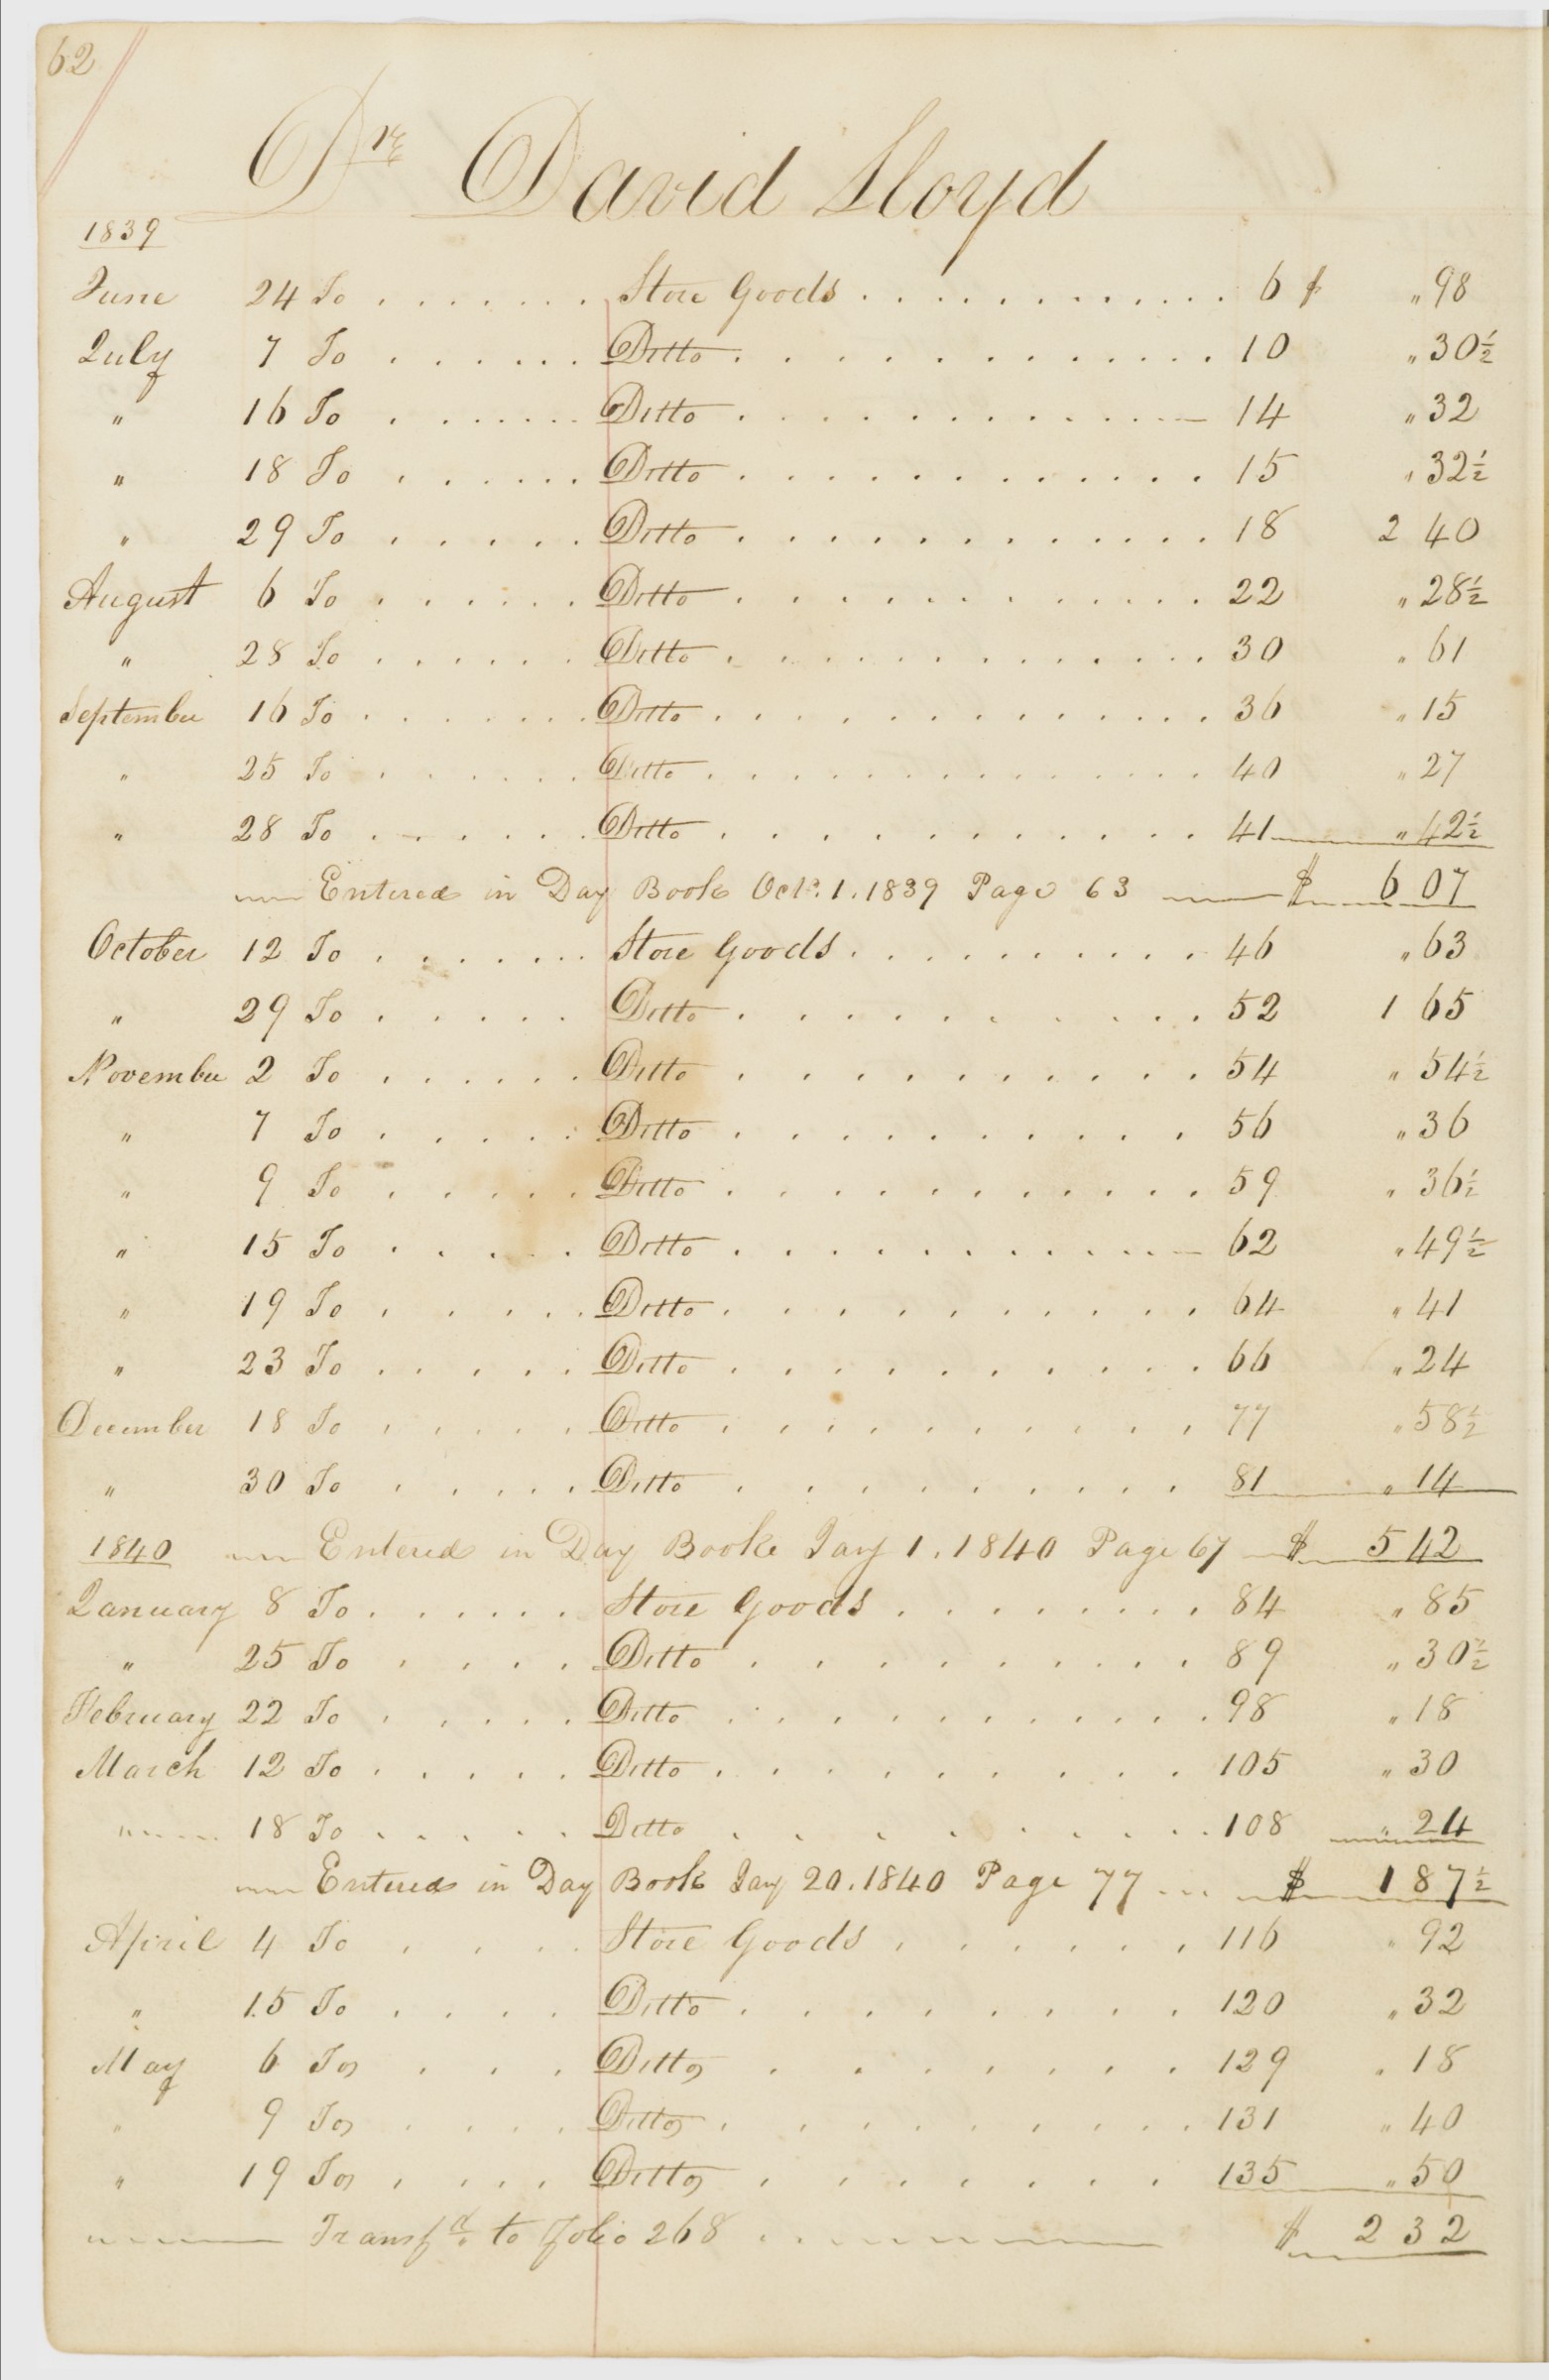 62
Dr. David Lloyd
1839
June 24 To . . . . . . . Store Goods . . . . . . . . . . . . 6 $ " 98
July 7 To . . . . . . Ditto . . . . . . . . . . . . 10 " 30½
" 16 To . . . . . . Ditto . . . . . . . . . . . . 14 " 32
" 18 To . . . . . . Ditto . . . . . . . . . . . . 15 " 32½
" 29 To . . . . . Ditto . . . . . . . . . . . . 18 2 40
August 6 To . . . . . . Ditto . . . . . . . . . . . . 22 " 28½
" 28 To . . . . . . Ditto . . . . . . . . . . . . 30 " 61
September 16 To . . . . . . . Ditto . . . . . . . . . . . . 36 " 15
" 25 To . . . . . . Ditto . . . . . . . . . . . . 40 " 27
" 28 To . . . . . . Ditto . . . . . . . . . . . 41 " 42½
Entered in Day Book Oct. 1. 1839 Page 63 $ 6 07
October 12 To . . . . . . Store Goods . . . . . . . . . . 46 " 63
" 29 To . . . . . Ditto . . . . . . . . . . . 52 1 65
November 2 To . . . . . . Ditto . . . . . . . . . . . 54 " 54½
" 7 To . . . . . Ditto . . . . . . . . . . 56 " 36
" 9 To . . . . . Ditto . . . . . . . . . . . 59 " 36½
" 15 To . . . . . Ditto . . . . . . . . . . . 62 " 49½
" 19 To . . . . . Ditto . . . . . . . . . . . 64 " 41
" 23 To . . . . . Ditto . . . . . . . . . . . 66 " 24
December 18 To . . . . . Ditto . . . . . . . . . . 77 " 58½
" 30 To . . . . . Ditto . . . . . . . . . . 81 " 14
1840 Entered in Day Book Jany 1. 1840 Page 67 $ 5 42
January 8 To . . . . . . Store Goods . . . . . . . . 84 " 85
" 25 To . . . . Ditto . . . . . . . . . . 89 " 30½
February 22 To . . . . . Ditto . . . . . . . . . . . 98 " 18
March 12 To . . . . . Ditto . . . . . . . . . . 105 " 30
" 18 To . . . . . Ditto . . . . . . . . . . 108 " 24
Entered in Day Book Jany 20. 1840 Page 77 $ 1 87½
April 4 To . . . . Store Goods . . . . . . 116 " 92
" 15 To . . . . Ditto . . . . . . . . 120 " 32
May 6 To . . . Ditto . . . . . . . 129 " 18
" 9 To . . . . Ditto . . . . . . . . . 131 " 40
" 19 To . . . . Ditto . . . . . . . 135 " 50
Transfd. to Folio 268 $ 2 32